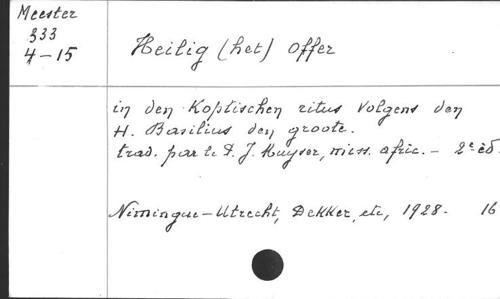 Meester
333
4-15
Heilig (het) Offer
in den Koptischen ritus volgens den
H. Basilius den groote.
trad. par le P. J. Muyser, miss. afric. - 2e éd.
Nimingue-Utrecht, Dekker, etc, 1928. 16